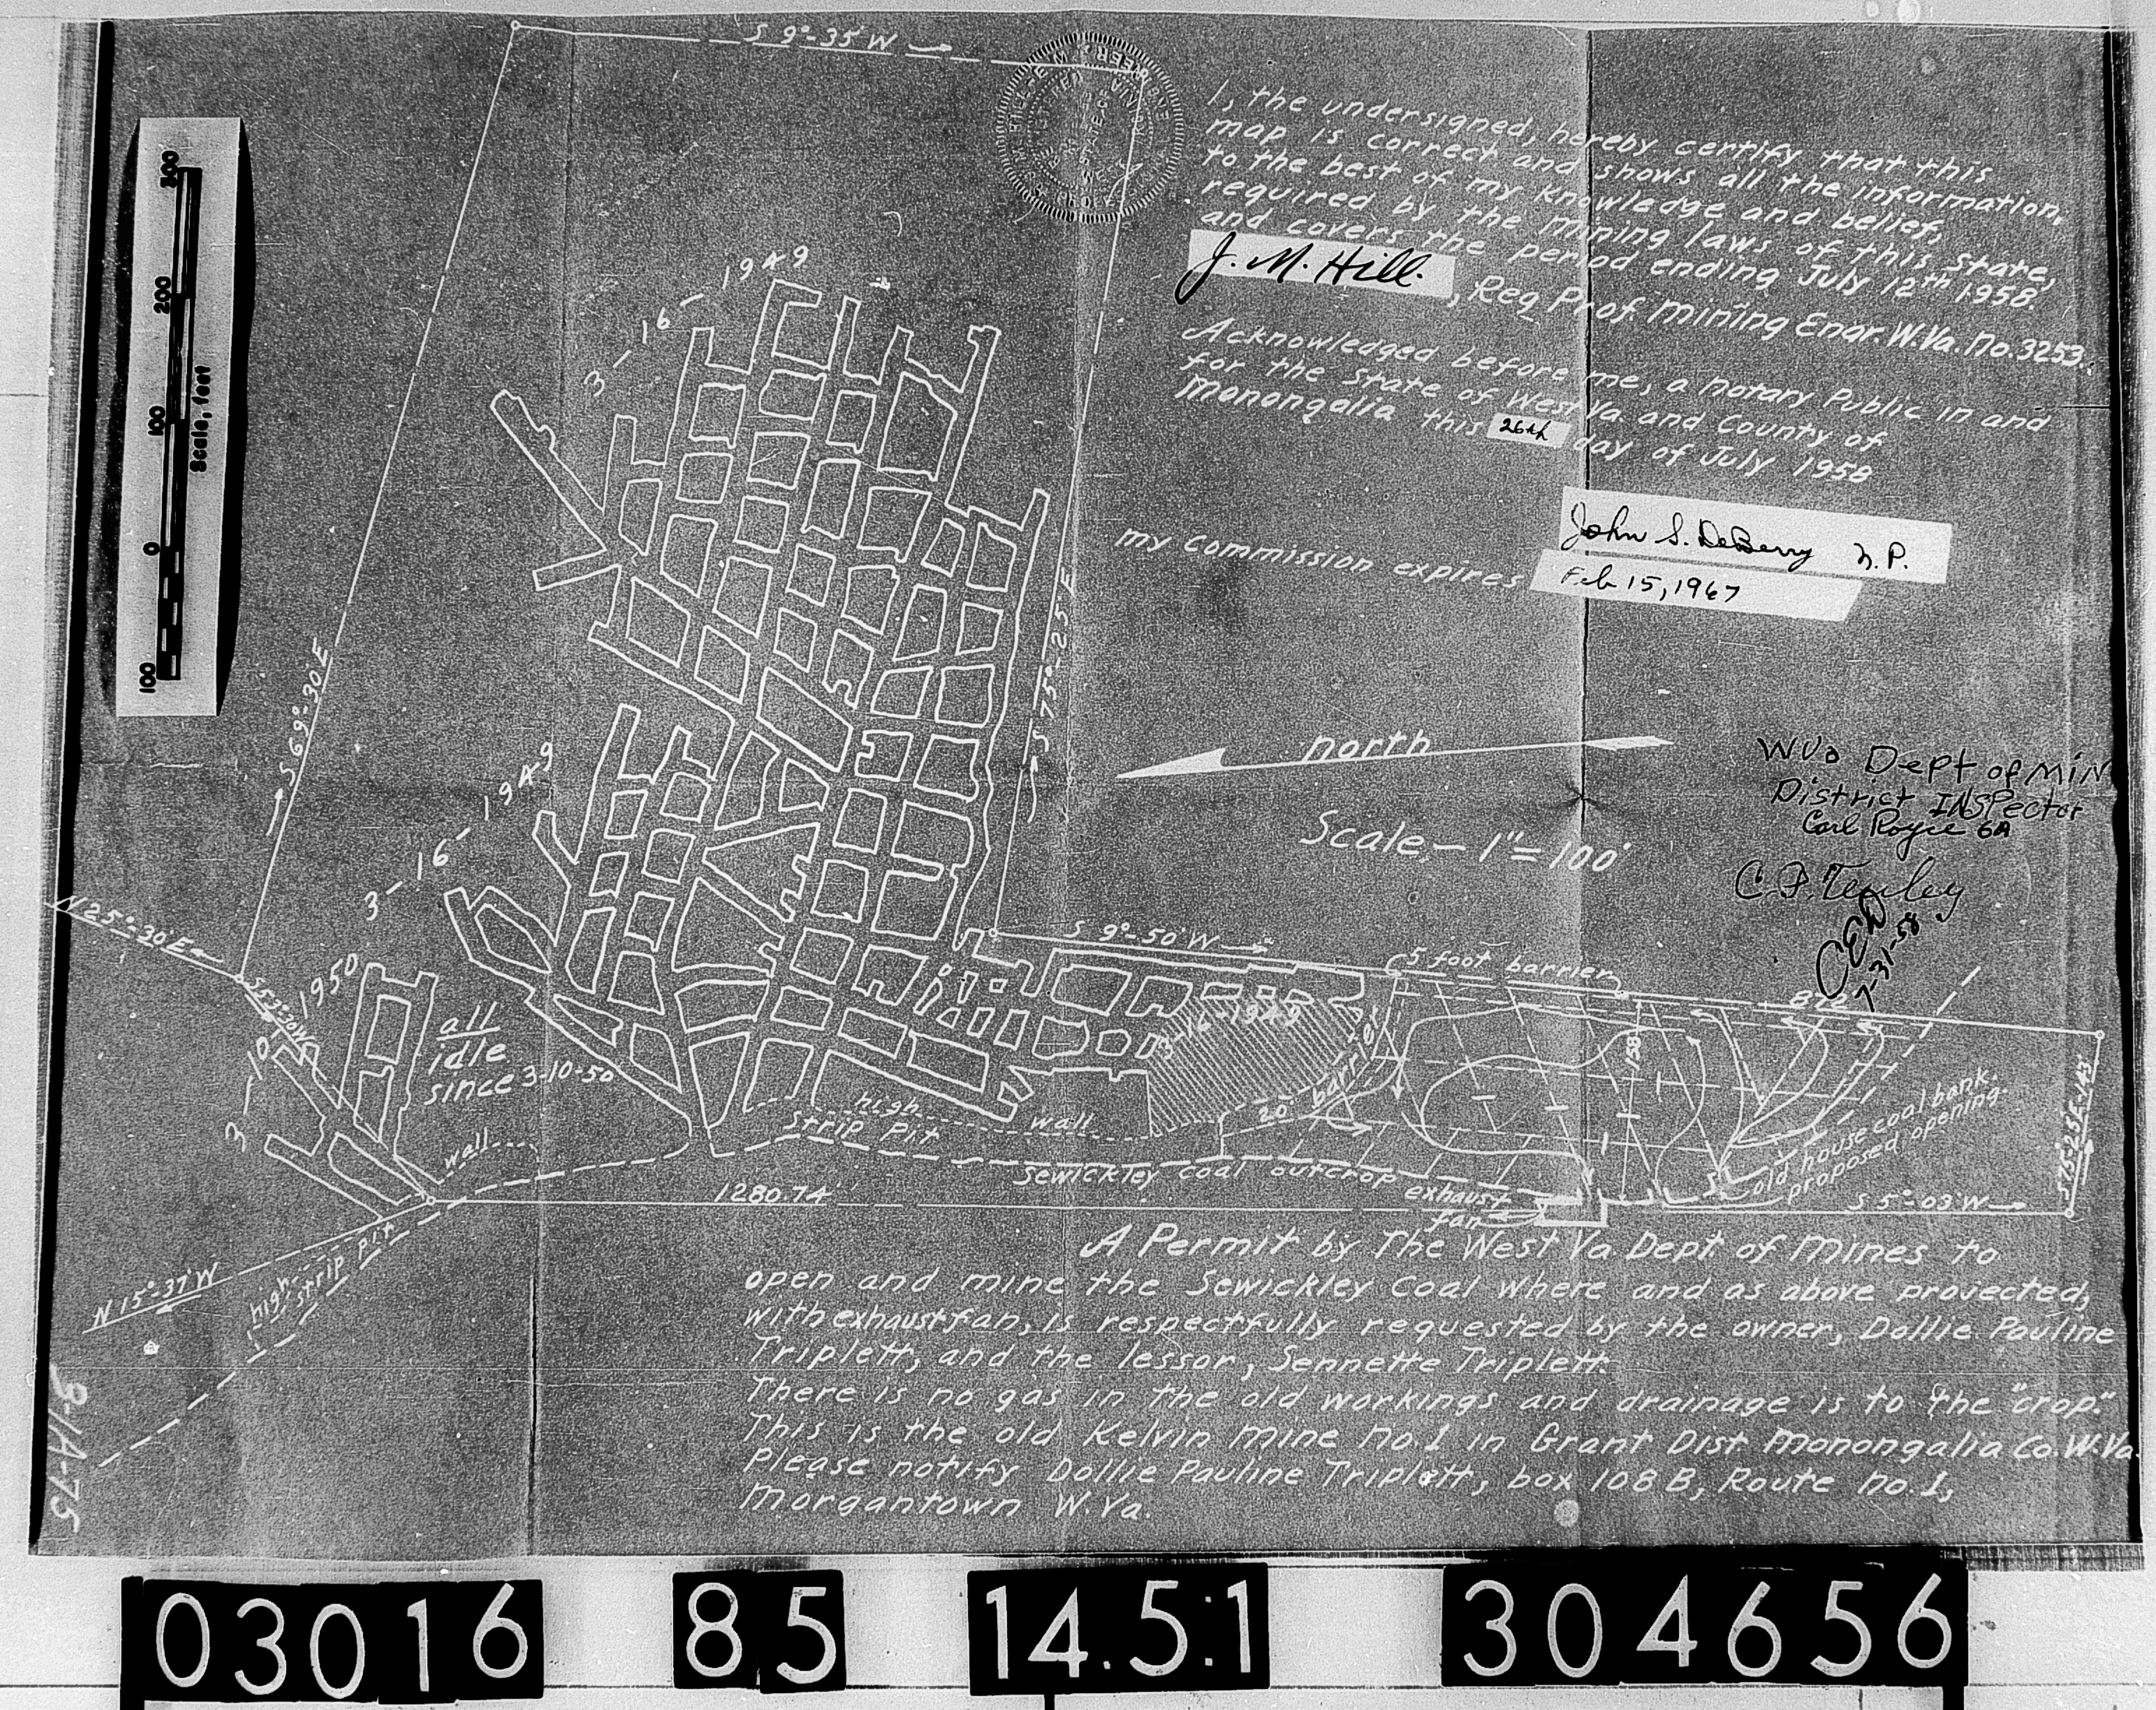 S 9°-35' W
I, the undersigned, hereby certify that this
map is correct and shows all the information,
to the best of my knowledge and belief,
required by the mining laws of this state,
and covers the period ending July 12th 1958.
J. M. Hill.
, Reg Prof. Mining Engr. W.Va. No. 3253.
Acknowledged before me, a Notary Public in and
for the State of West Va. and County of
Monongalia this 26th day of July 1958
John S. DeBerry N.P.
My Commission expires Feb 15, 1967
300
200
100
0
100
Scale, feet
3-16-1949
S 69°-30' E
S 75°-25' E
north
Scale - 1"= 100'
WVa Dept of MIN
District INSPector
Carl Royce 6A
CED
7-31-58
3-16-1949
N 25°-30' E
S 53°-30' W
3-10-1950
all
idle
since 3-10-50
S 9°-50' W
5 foot barrier
872
16-1949
20' barrier
158
S 75°-25' E-143'
old house coal bank.
proposed opening.
high wall
Strip Pit
wall
Sewickley coal outcrop
exhaust
fan
1280.74'
S 5°-03' W
N 15°-37' W
high
strip pit
A Permit by The West Va. Dept of Mines to
open and mine the Sewickley Coal where and as above projected,
with exhaust fan, is respectfully requested by the owner, Dollie Pauline
Triplett, and the lessor, Sennette Triplett.
There is no gas in the old workings and drainage is to the "crop."
This is the old Kelvin Mine No. 1 in Grant Dist Monongalia Co. W. Va.
Please notify Dollie Pauline Triplett, box 108 B, Route No. 1,
Morgantown W. Va.
03016
85
14.5:1
304656